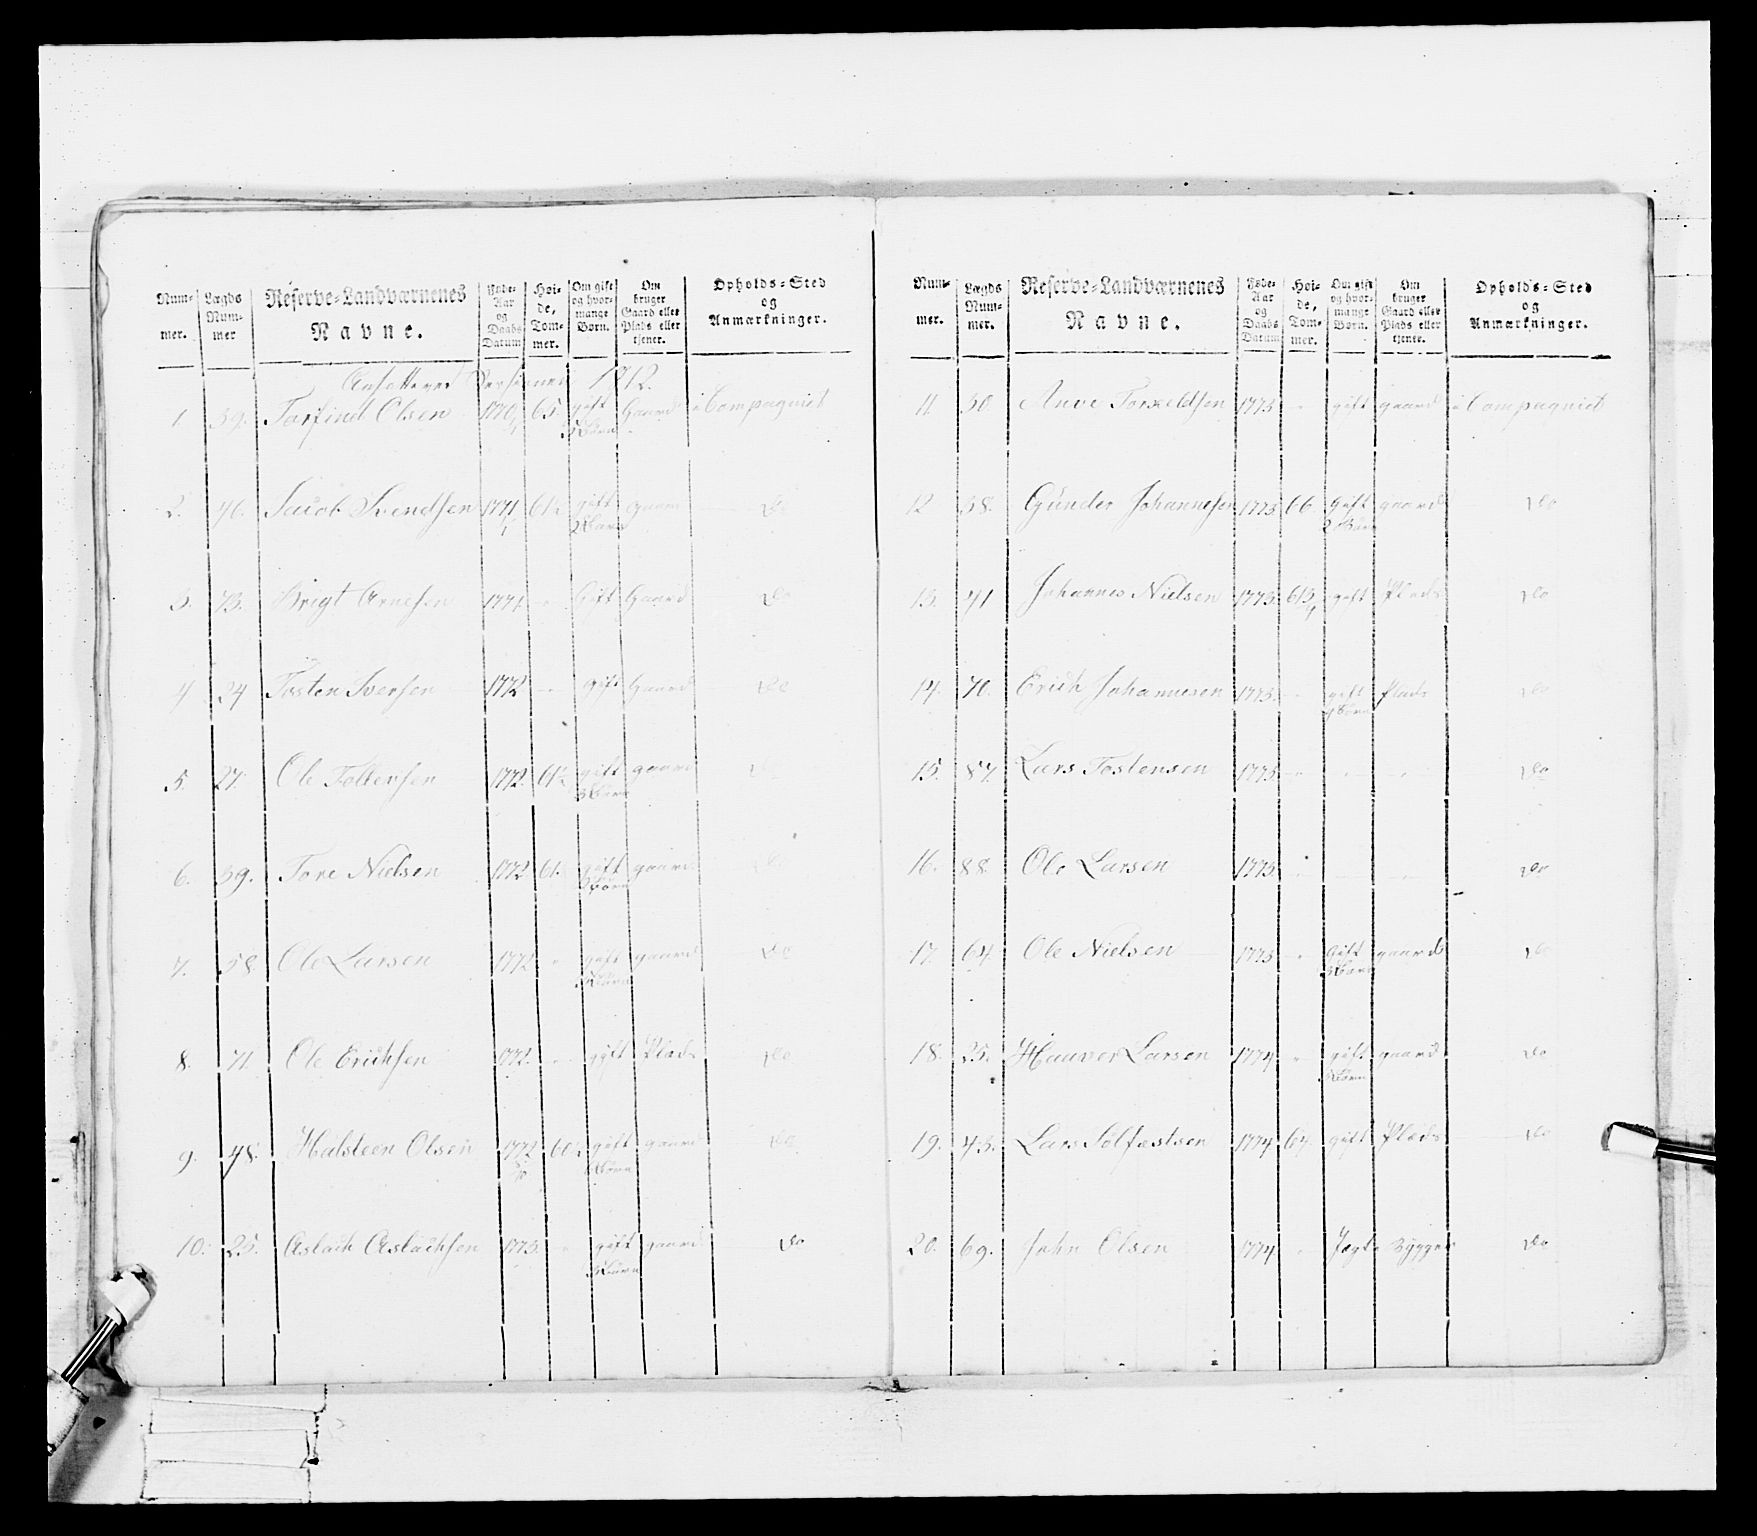 Num- mer.
Lægds Num- mer
Reserve-Landværnenes Navne.
Føde- Aar og Daabs Datum
Høi- de, Tom- mer.
Om gift og hvor- mange Børn.
Om bruger Gaard eller Plads eller tjener.
Opholds-Sted og Anmærkninger.
1812.
1. 39. Torfind Olsen 1770 65. gift Gaard i Compagniet
3 Børn
2. 46. Jacob Svendsen 1771 61 gift gaard Do
2 Børn
3. 73. Brigt Arnesen 1771 - Gift Gaard Do
4 24 Tosten Iversen 1772 - gift Gaard Do
5. 27. Ole Tollersen 1772. 61 gift gaard Do
3 Børn
6. 39. Tore Nielsen 1772 61. gift gaard Do
3 Børn
7. 58 Ole Larsen 1772 " gift gaard Do
3 Børn
8. 71 Ole Erichsen 1772. - gift Plads Do
9. 48. Halsteen Olsen 1772 60 gift gaard Do
Børn
10. 25. Aslach Aslachsen 1773. " gift gaard Do
3 Børn
Num- mer.
Lægds Num- mer.
Reserve-Landværnenes Navne.
Føde- Aar og Daabs Datum
Høi- de, Tom- mer.
Om gift og hvor- mange Børn.
Om bruger Gaard eller Plads eller tjener.
Opholds-Sted og Anmærkninger.
11. 30. Torkeldsen 1773 - gift gaard i Compagniet
12 38. Gunder Johannesen 1773 66 Gift gaard Do
2 Børn
13. 41 Johannes Nielsen 1773. gift Plads Do
14. 70. Erich Johannesen 1773. " gift Plads Do
Børn
15. 87. Lars Tostensen 1773 - - - Do
16. 88. Ole Larsen 1773 - - - Do
17. 64 Ole Nielsen 1773 " Gift gaard Do
3 Børn
18. 25. Haaver Larsen 1774 " gift gaard Do
Børn
19. 43. Lars Solfæstsen 1774 64. gift Plads Do
20. 69. John Olsen 1774 - Jagte Bygger Do